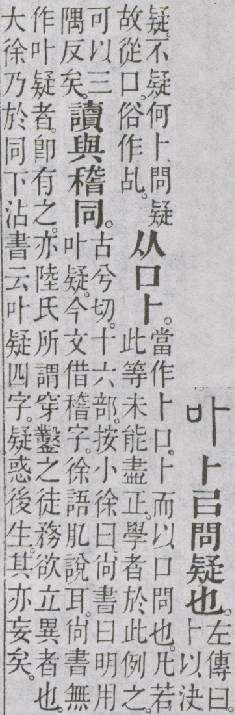 卟 卜㠯問疑也。左傳曰卜以決
疑。不疑何卜。問疑故從口。俗作乩。从口卜。當作卜口。卜而以口問也。凡若此等未能盡正。學者於此例之。
可以三隅反矣。讀與稽同。古兮切。十六部。按小徐曰尚書曰明用叶疑。今文借稽字。徐語肊說耳。尚書無
作叶疑者。卽有之。亦陸氏所謂穿鑿之徒務欲立異者也。
大徐乃於同下沾書云叶疑四字。疑惑後生。其亦妄矣。